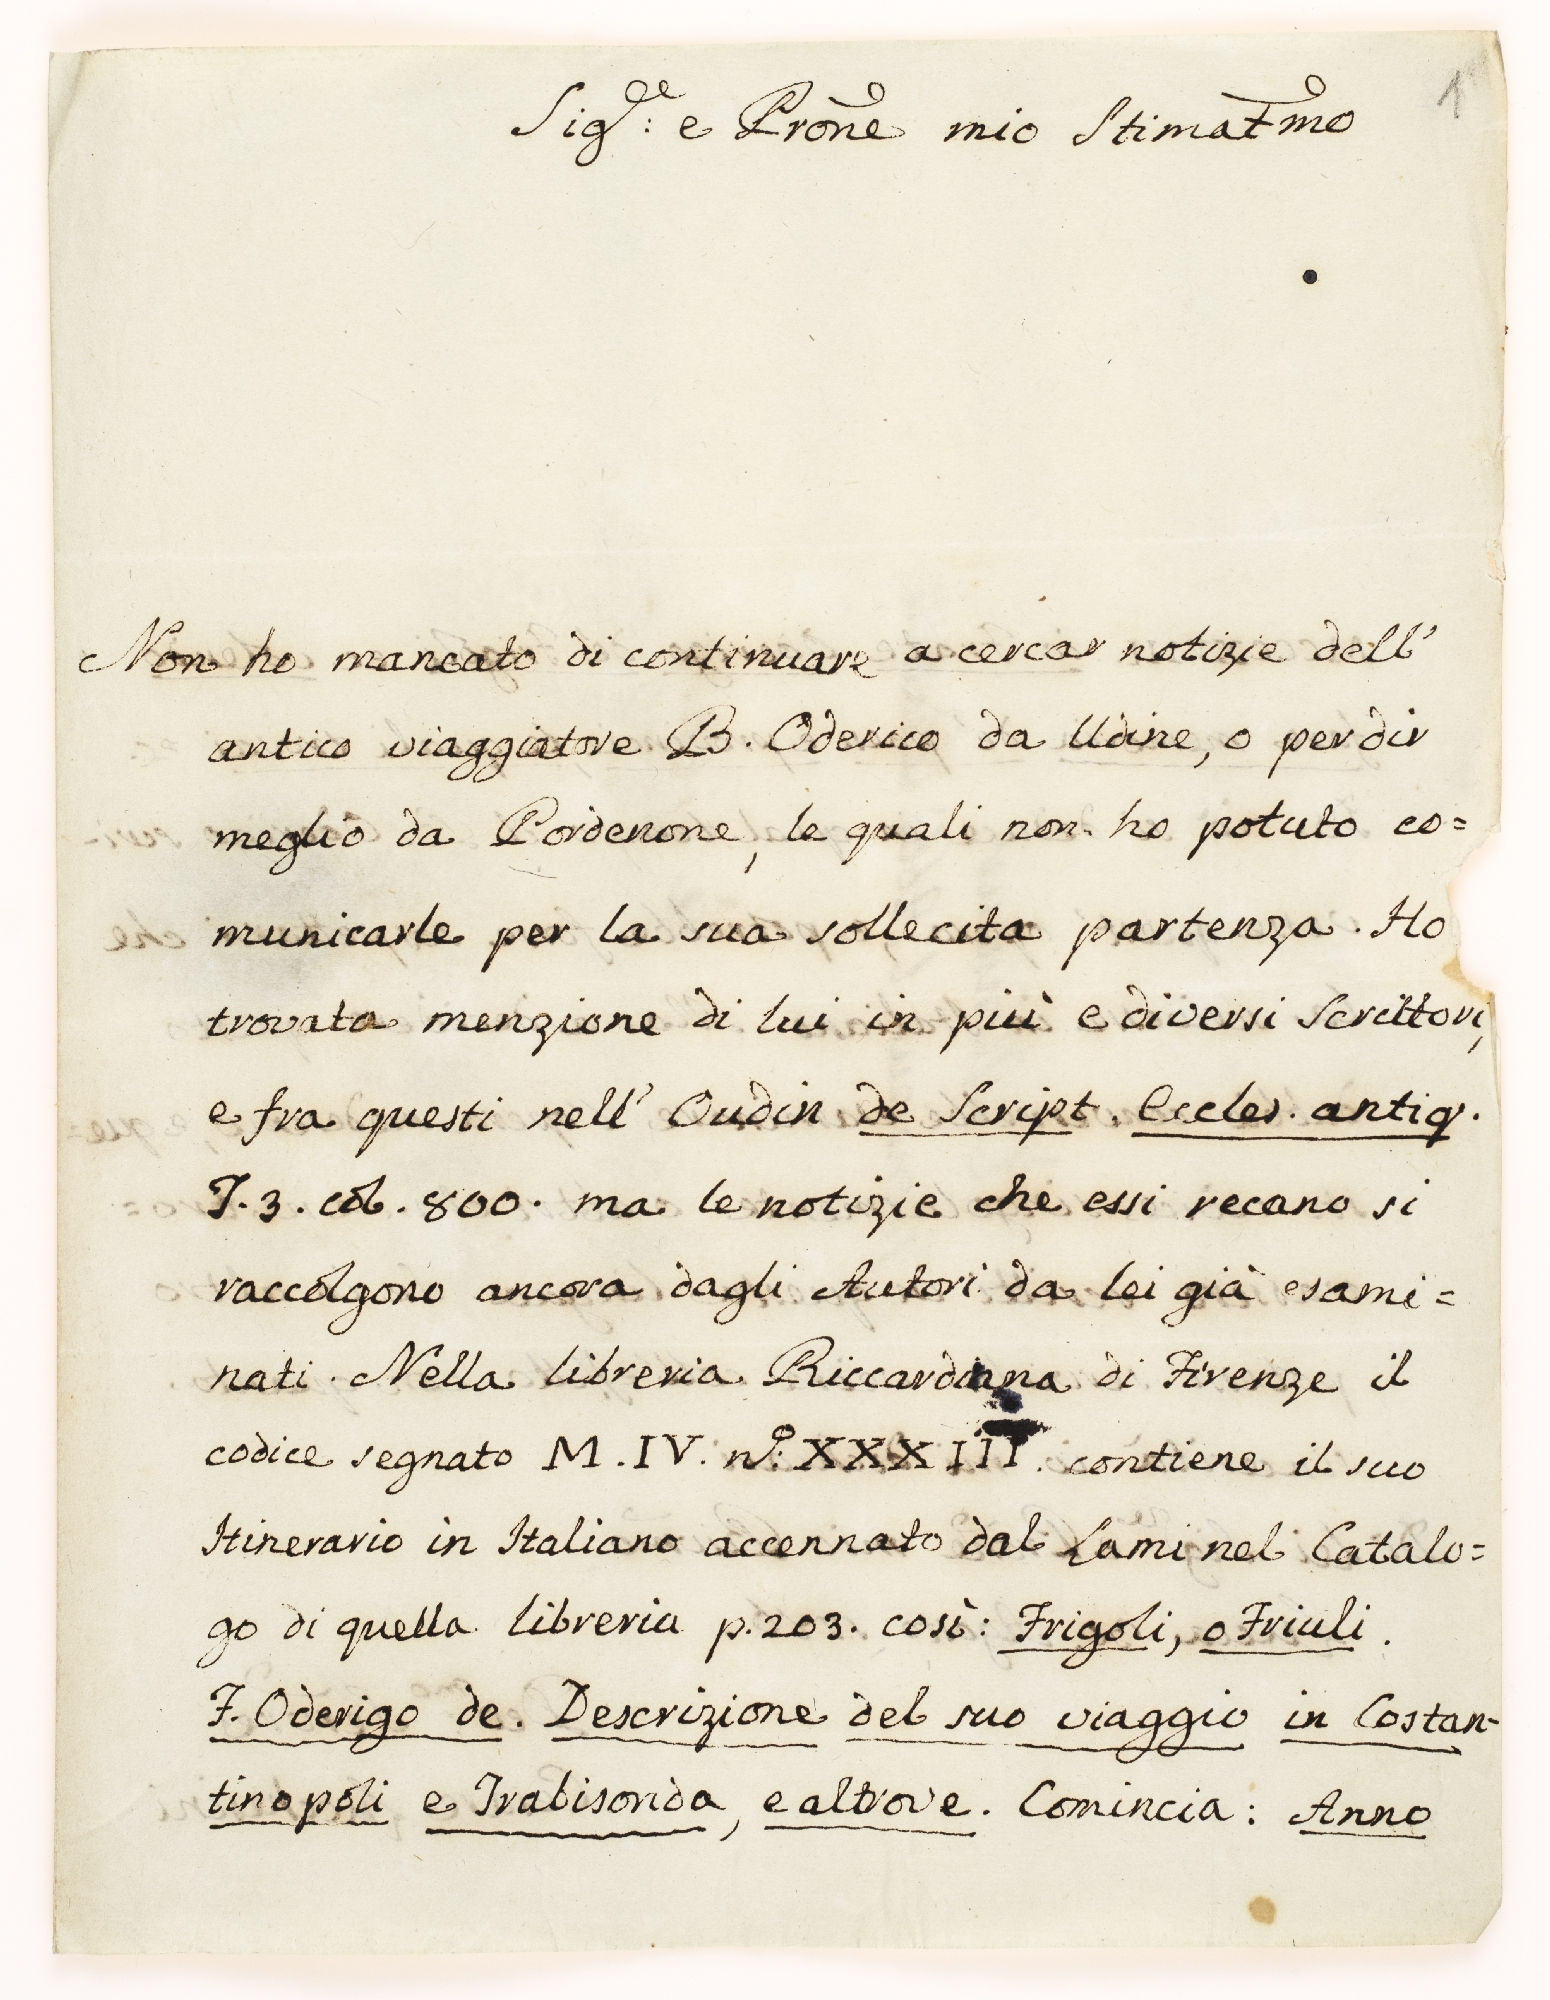 1
Sig.re: e Prone mio Stimatmo
Non ho mancato di continuare a cercar notizie dell'
antico viaggiatore B. Oderico da Udine, o per dir
meglio da Pordenone, le quali non ho potuto co=
municarle per la sua sollecita partenza. Ho
trovata menzione di lui in più e diversi Scrittori,
e fra questi nell' Oudin de Script. Eccles. antiq.
T. 3. col. 800. ma le notizie che essi recano si
raccolgono ancora dagli Autori da lei già esami=
nati. Nella libreria Riccardiana di Firenze il
codice segnato M. IV. n.o: XXXIII. contiene il suo
Itinerario in Italiano accennato dal Lami nel Catalo=
go di quella libreria p. 203. così: Frigoli, o Friuli.
F. Oderigo de. Descrizione del suo viaggio in Costan-
tinopoli e Trabisonda, e altrove. Comincia: Anno